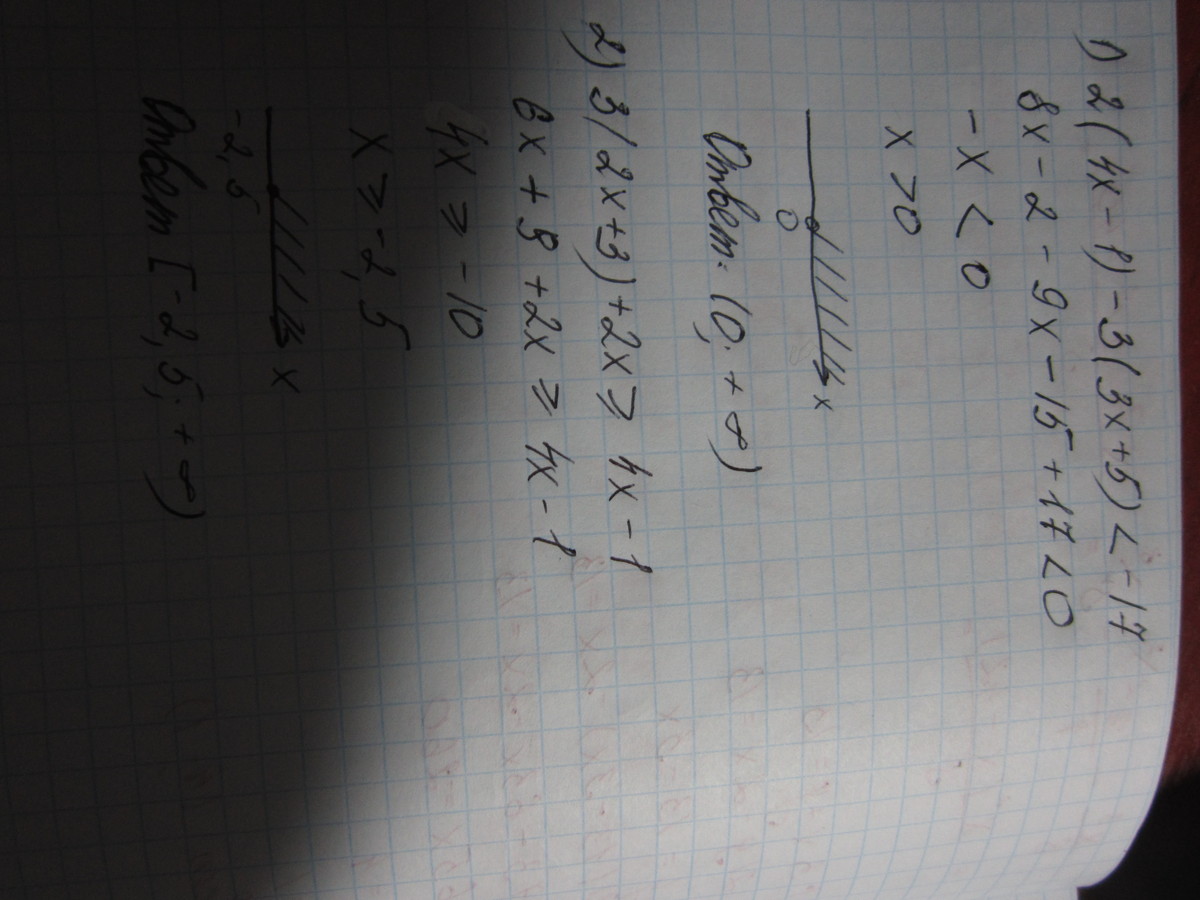 1) 2(4x-1)-3(3x+5)<-17
8x-2-9x-15+17<0
-x<0
x>0
0 x
Ответ: (0; +∞)
2) 3(2x+3)+2x≥4x-1
6x+9+2x≥4x-1
4x≥-10
x≥-2,5
-2,5 x
Ответ [-2,5; +∞)